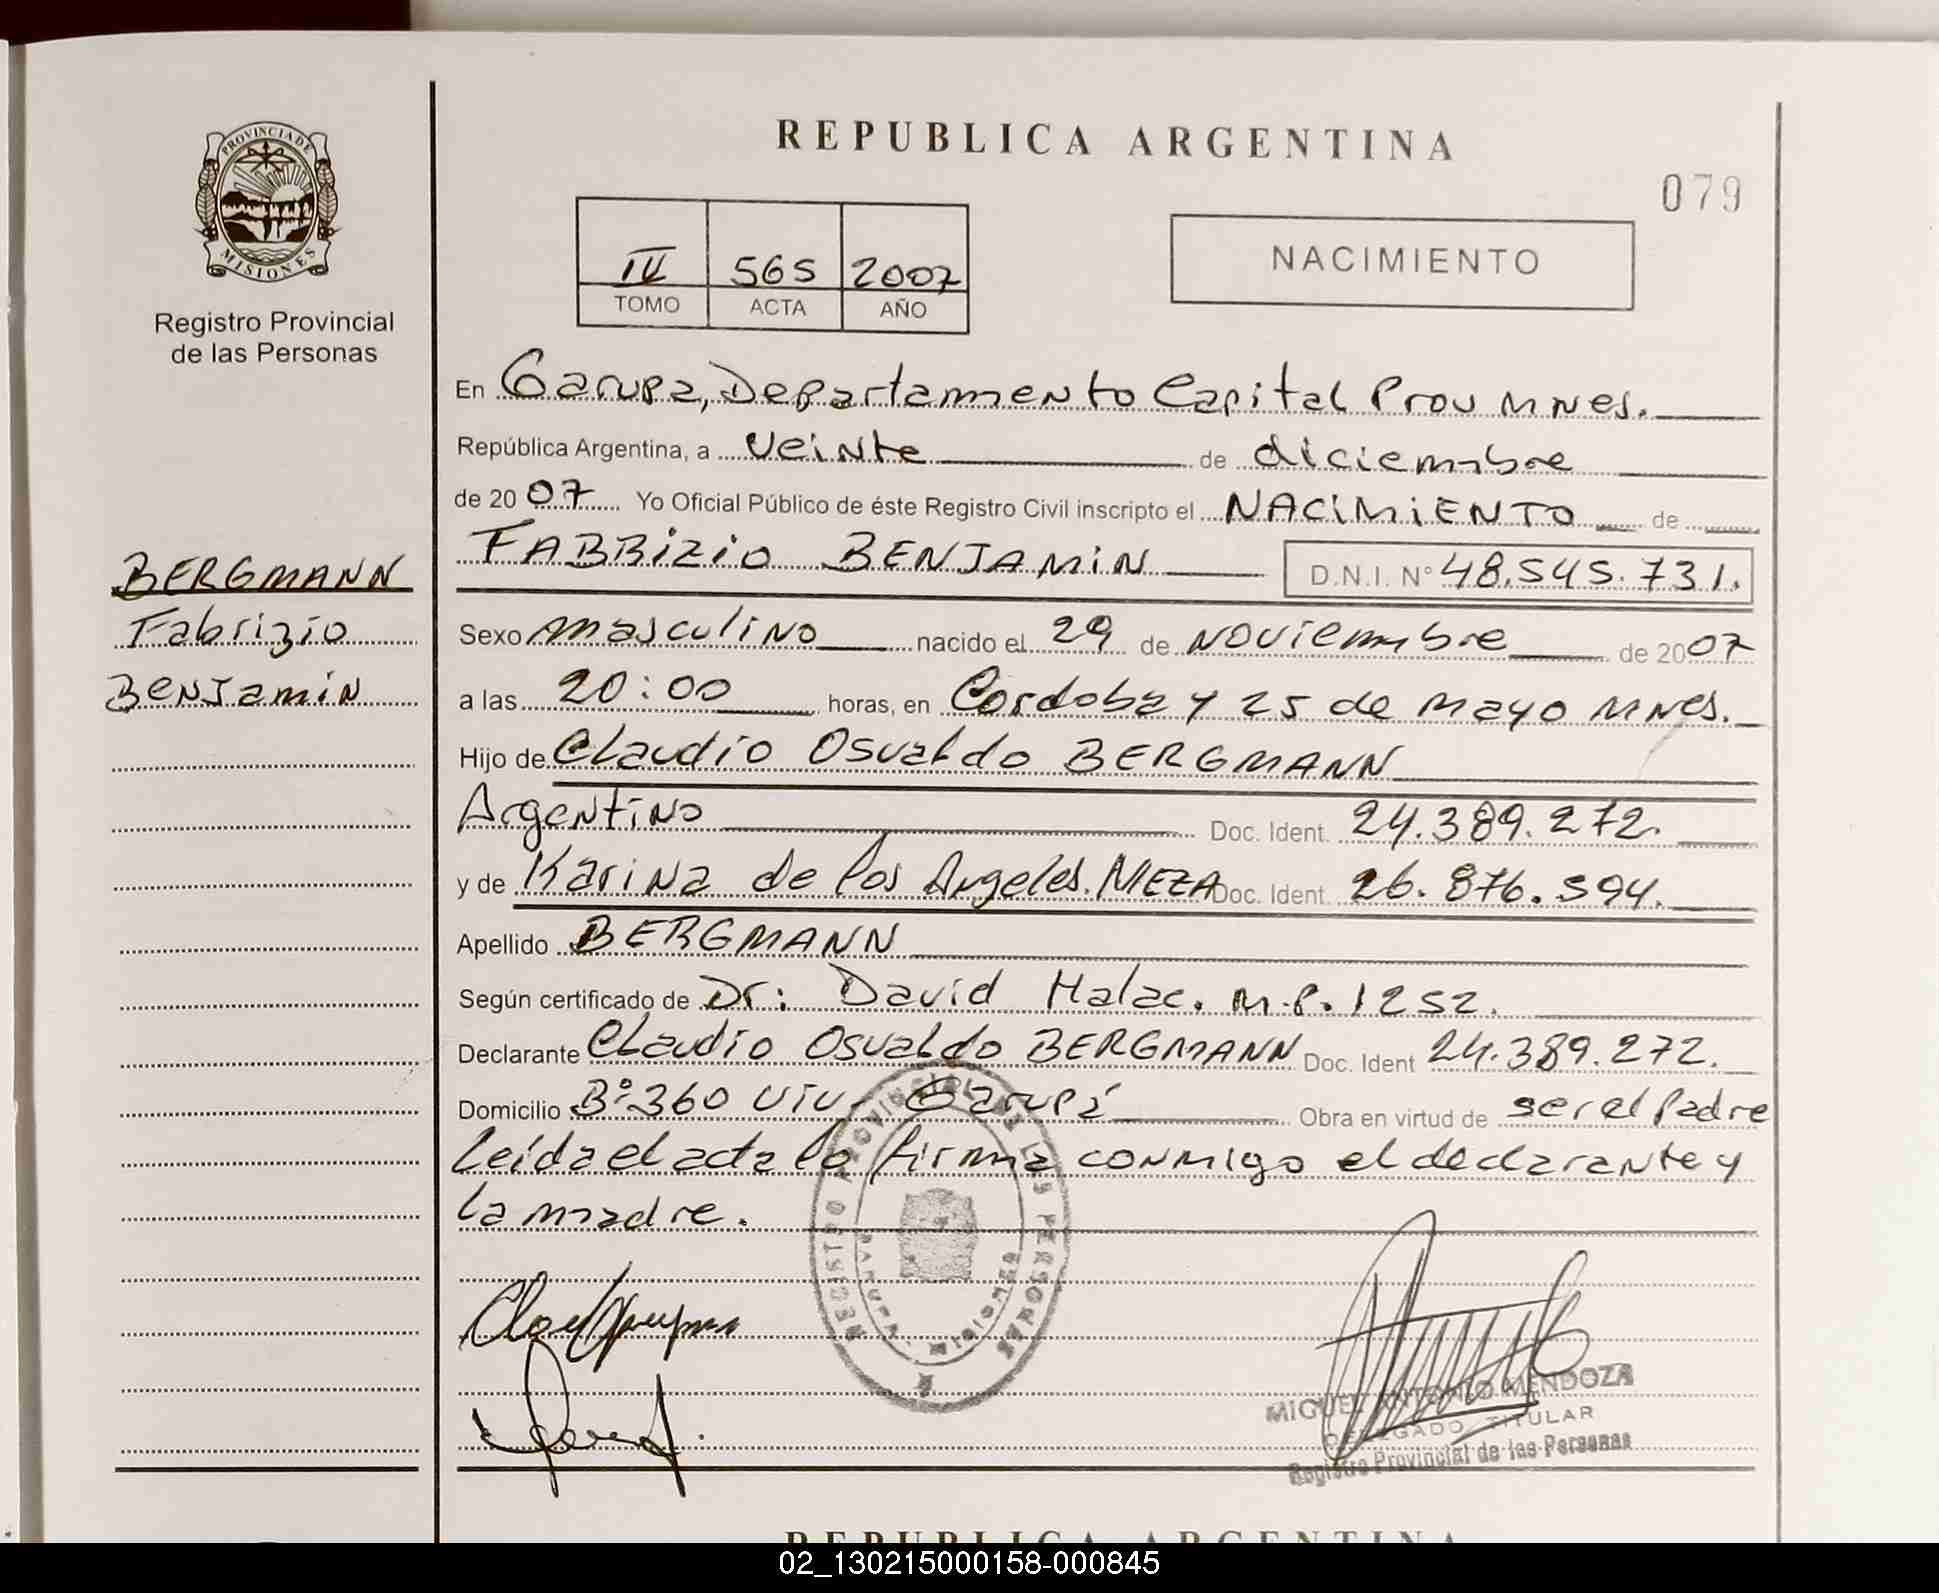 REPUBLICA ARGENTINA
079
PROVINCIA DE
MISIONES
Registro Provincial
de las Personas
IV 565 2007
TOMO ACTA AÑO
NACIMIENTO
En Garupa, Departamento Capital Prov Mnes.
República Argentina, a veinte de diciembre
de 2007 Yo Oficial Público de éste Registro Civil inscripto el NACIMIENTO de
FABRIZIO BENJAMIN D.N.I. N° 48.545.731.
BERGMANN
Fabrizio
Benjamin
Sexo masculino nacido el 29 de noviembre de 2007
a las 20:00 horas, en Cordoba y 25 de mayo Mnes.
Hijo de Claudio Osvaldo BERGMANN
Argentino Doc. Ident. 24.389.272.
y de Karina de los Angeles. MEZA Doc. Ident. 26.876.594.
Apellido BERGMANN
Según certificado de Dr: David Halac. M.P. 1252.
Declarante Claudio Osvaldo BERGMANN Doc. Ident 24.389.272.
Domicilio B° 360 viv- Garupá Obra en virtud de ser el Padre
Leída el acta la firma conmigo el declarante y
la madre.
REGISTRO PROVINCIAL DE LAS PERSONAS
MISIONES
MIGUEL ANTONIO MENDOZA
DELEGADO TITULAR
Registro Provincial de las Personas
REPUBLICA ARGENTINA
02_130215000158-000845